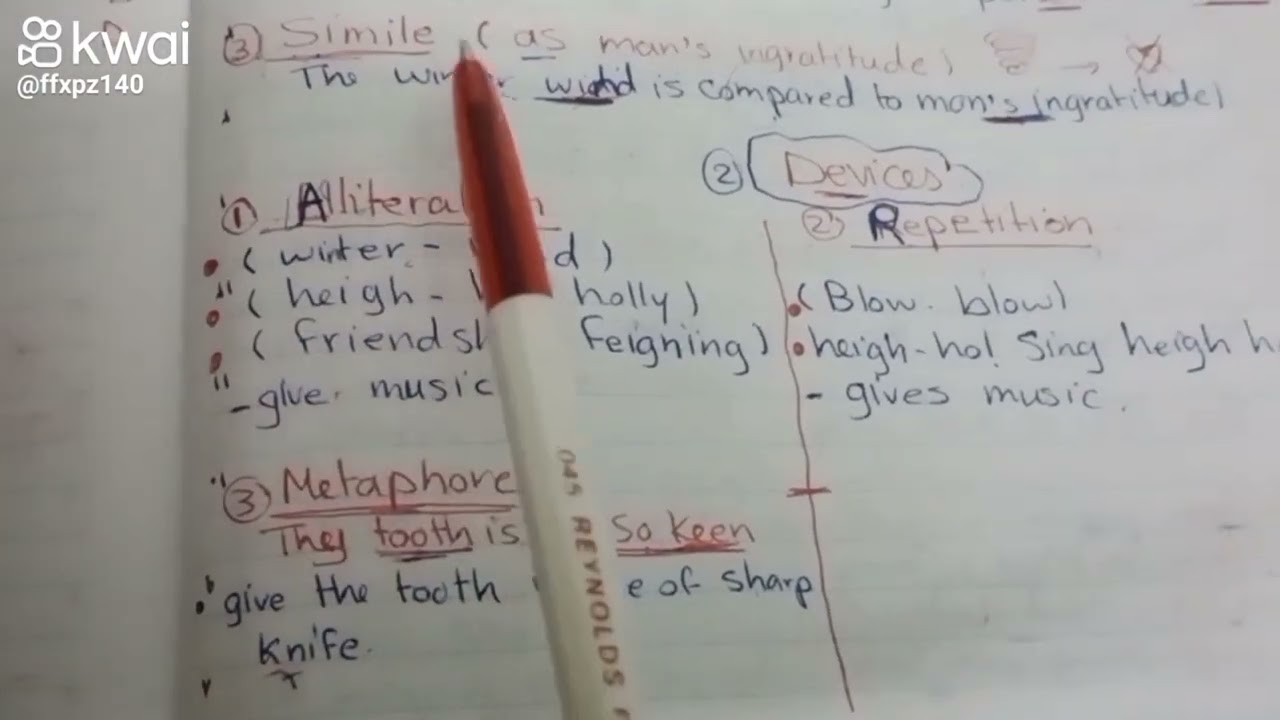 kwai
@ffxpz140
③ Simile ( as man's ingratitude)
The wind is compared to man's ingratitude)
② Devices
① Allitera n
② Repetition
( winter - d )
( heigh - holly)
( friendsh feigning )
- give music
(Blow. blow)
heigh-ho! Sing heigh h
- gives music.
③ Metaphore
They tooth is So keen
give the tooth e of sharp
knife.
045 REYNOLDS